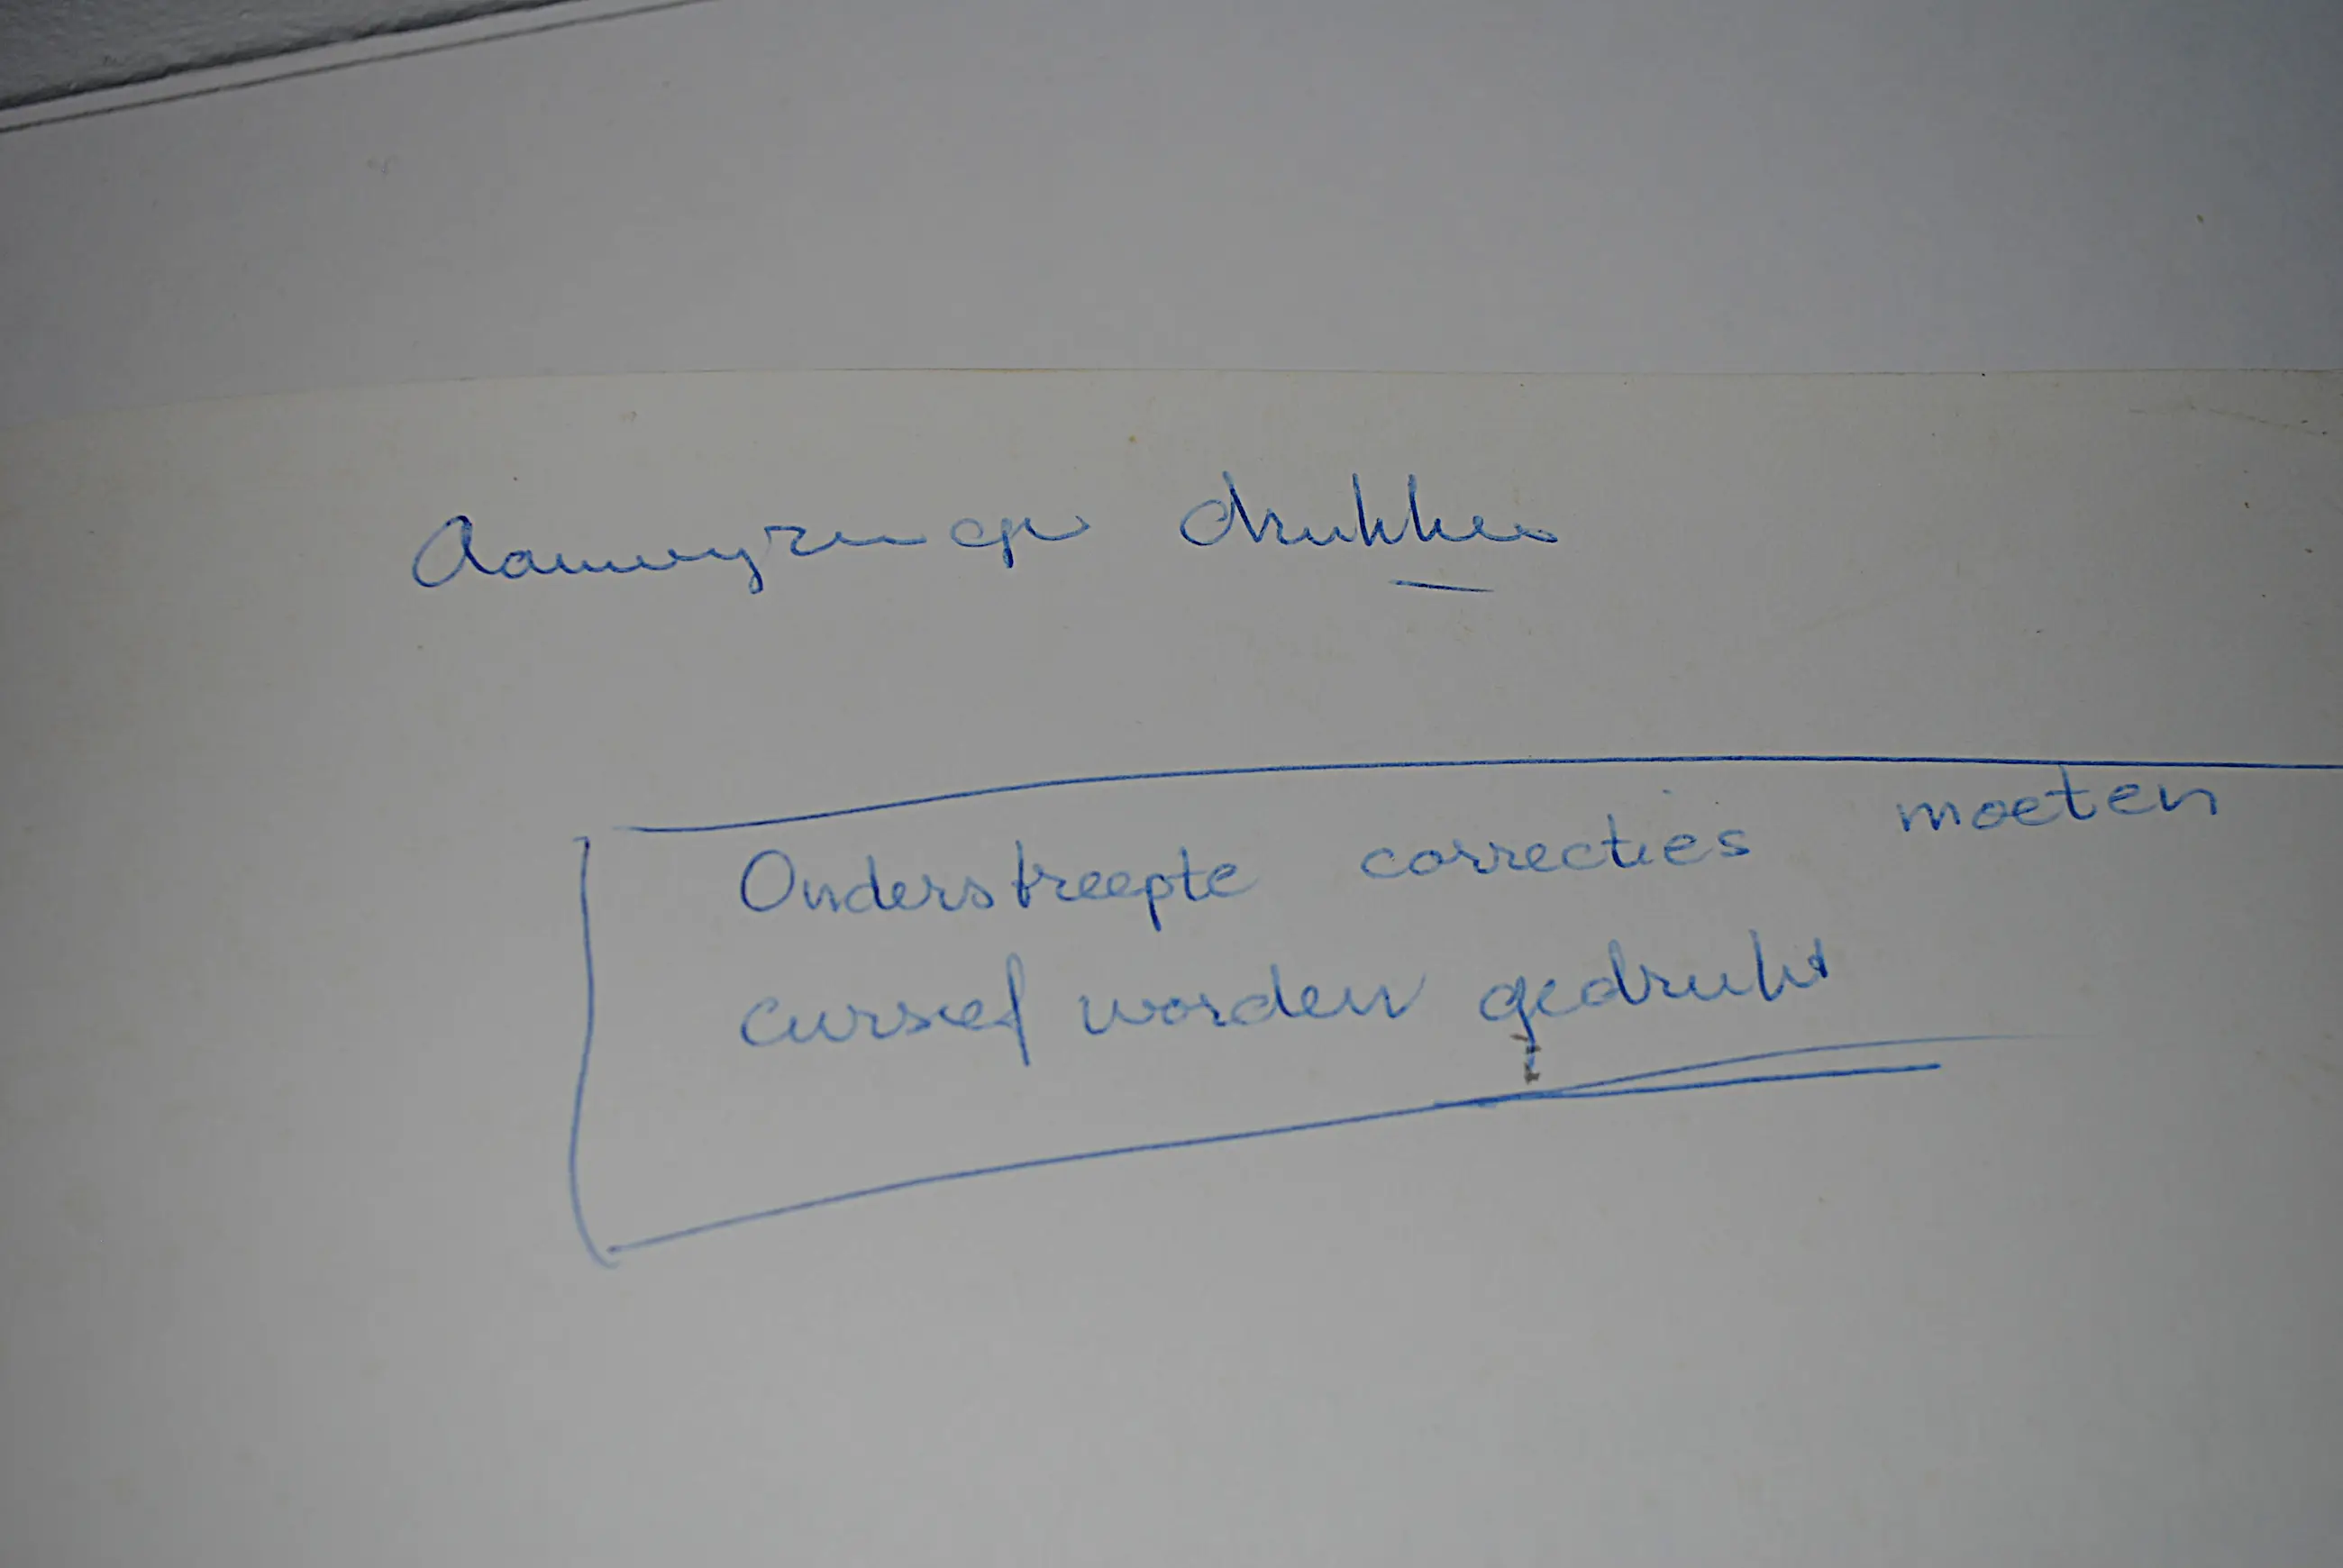 Aanwyzingen drukker
Onderstreepte correcties moeten
cursief worden gedrukt